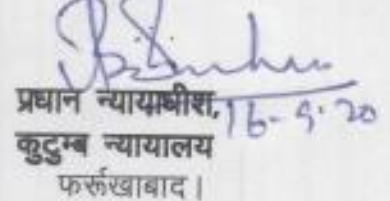 प्रधान न्यायाधीश, 16-9-20
कुटुम्ब न्यायालय
फर्रूखाबाद।